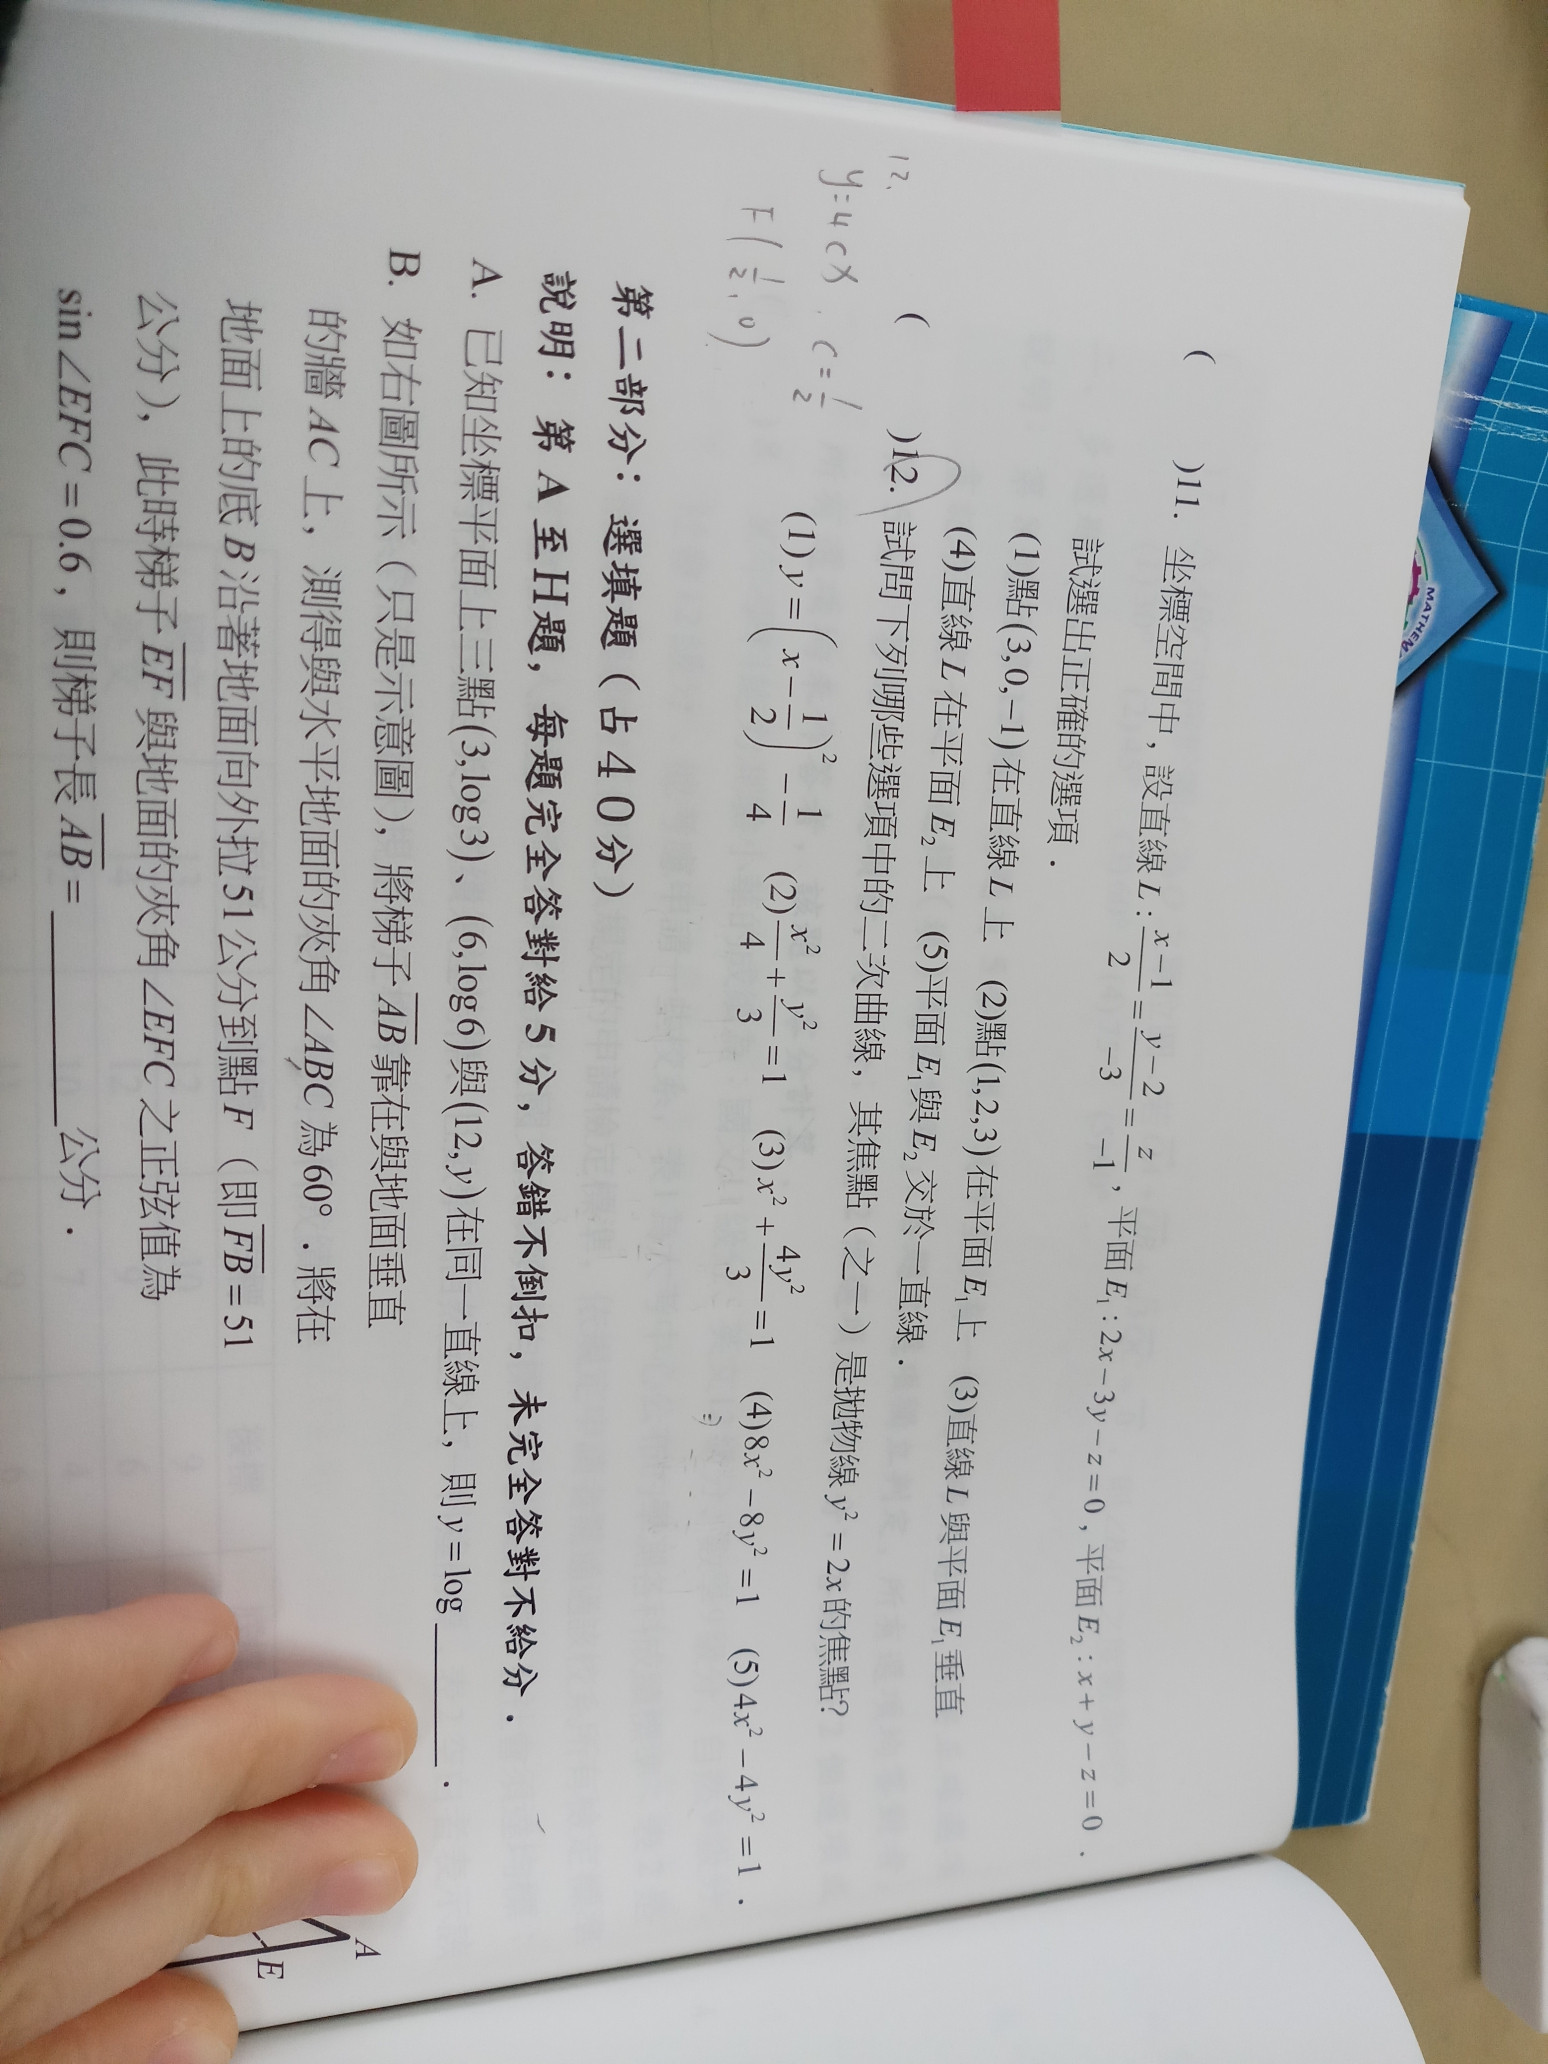 )11. 坐標空間中，設直線 L：\frac{x-1}{2}=\frac{y-2}{-3}=\frac{z}{-1}，平面 E₁：2x-3y-z=0，平面 E₂：x+y-z=0．
試選出正確的選項．
(1)點(3,0,-1)在直線 L 上 (2)點(1,2,3)在平面 E₁ 上 (3)直線 L 與平面 E₁ 垂直
(4)直線 L 在平面 E₂ 上 (5)平面 E₁ 與 E₂ 交於一直線．
( )12. 試問下列哪些選項中的二次曲線，其焦點（之一）是拋物線 y²=2x 的焦點？
(1) y=\left(x-\frac{1}{2}\right)^2-\frac{1}{4} (2)\frac{x^2}{4}+\frac{y^2}{3}=1 (3)x²+\frac{4y^2}{3}=1 (4)8x²-8y²=1 (5)4x²-4y²=1．
12.
y=4cx．c=\frac{1}{2}
F(\frac{1}{2},0)
第二部分：選填題（占40分）
說明：第A至H題，每題完全答對給5分，答錯不倒扣，未完全答對不給分．
A. 已知坐標平面上三點(3,log3)、(6,log6)與(12,y)在同一直線上，則 y=log________．
B. 如右圖所示（只是示意圖），將梯子 \overline{AB} 靠在與地面垂直
的牆 AC 上，測得與水平地面的夾角∠ABC 為60°．將在
地面上的底 B 沿著地面向外拉51公分到點F（即 \overline{FB}=51
公分），此時梯子 \overline{EF} 與地面的夾角∠EFC之正弦值為
sin∠EFC=0.6，則梯子長 \overline{AB}=________公分．
A
E